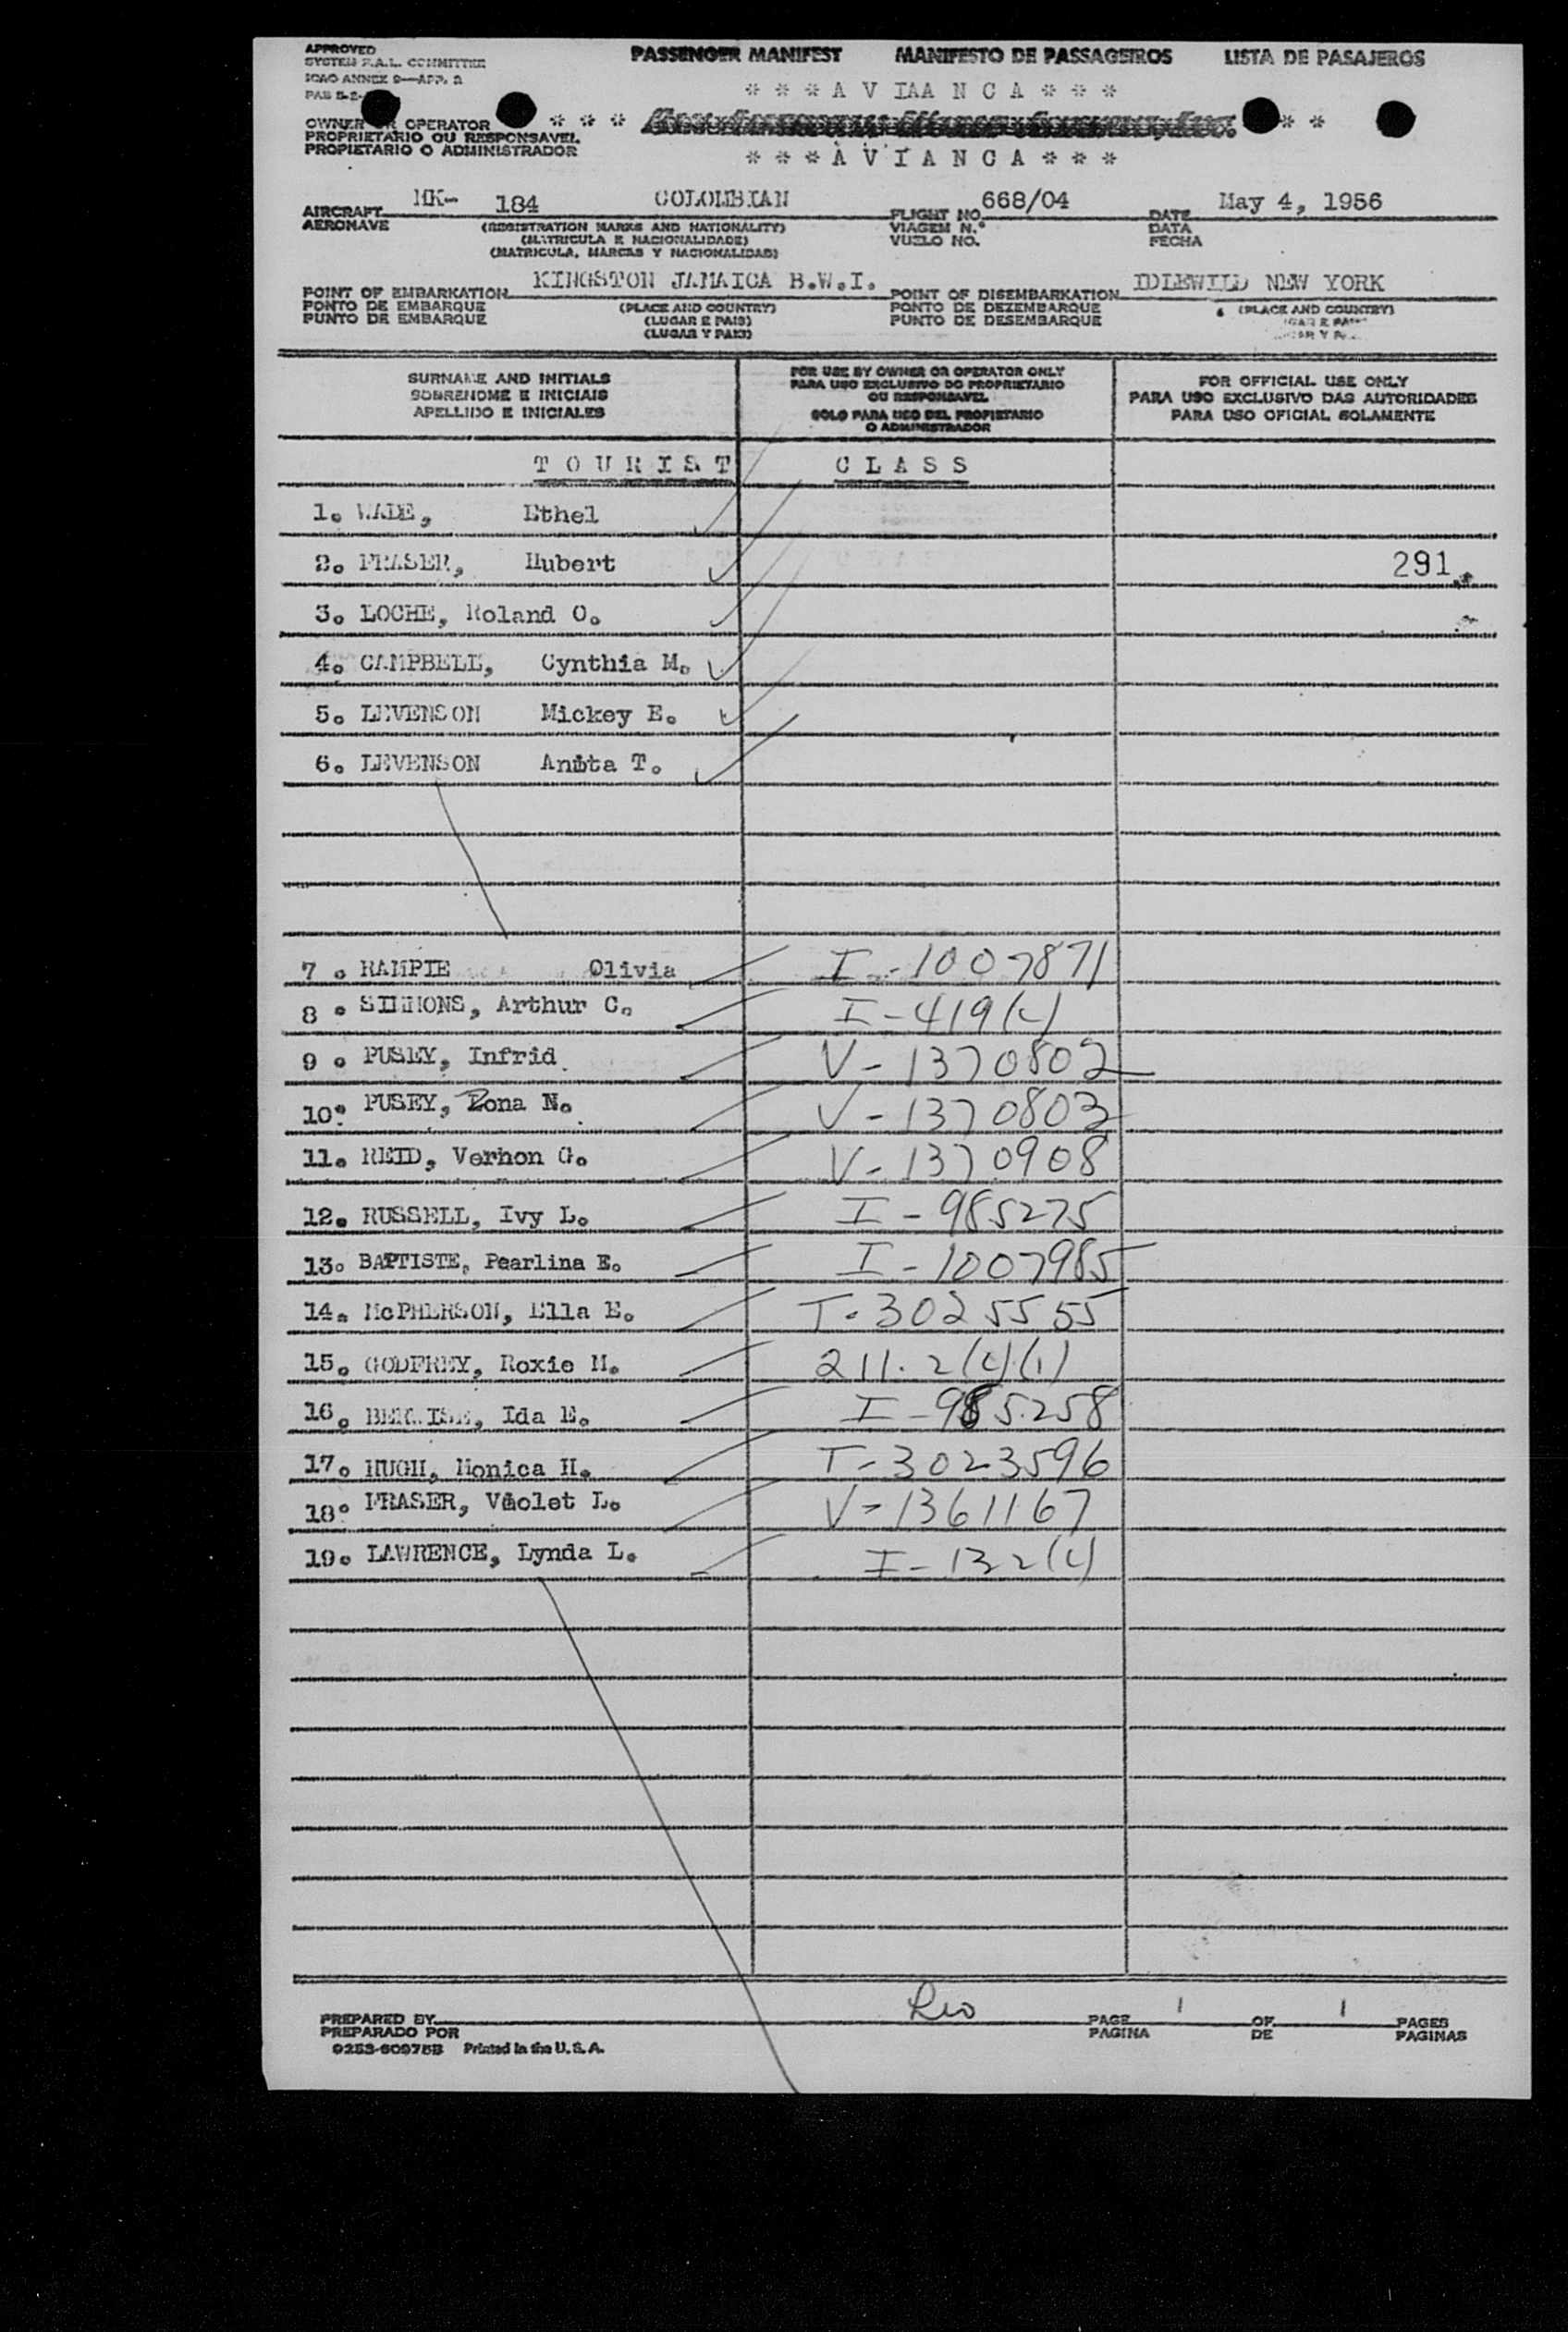 APPROVED
SYSTEM F.A.L. COMMITTEE
ICAO ANNEX 9—APP. 2
PASSENGER MANIFEST MANIFESTO DE PASSAGEIROS LISTA DE PASAJEROS
* * * A V IAA N C A * * *
OWNER OR OPERATOR * * * * *
PROPRIETARIO OU RESPONSAVEL
PROPIETARIO O ADMINISTRADOR
* * * A V I A N C A * * *
AIRCRAFT HK- 184 COLOMBIAN FLIGHT NO. 668/04 DATE May 4, 1956
AERONAVE (REGISTRATION MARKS AND NATIONALITY) VIAGEM N.° DATA
(MATRICULA E NACIONALIDADE) VUELO NO. FECHA
(MATRICULA, MARCAS Y NACIONALIDAD)
POINT OF EMBARKATION KINGSTON JAMAICA B.W.I. POINT OF DISEMBARKATION IDLEWILD NEW YORK
PONTO DE EMBARQUE (PLACE AND COUNTRY) PONTO DE DEZEMBARQUE (PLACE AND COUNTRY)
PUNTO DE EMBARQUE (LUGAR E PAIS) PUNTO DE DESEMBARQUE
(LUGAR Y PAIS)
SURNAME AND INITIALS
SOBRENOME E INICIAIS
APELLIDO E INICIALES
FOR USE BY OWNER OR OPERATOR ONLY
PARA USO EXCLUSIVO DO PROPRIETARIO
OU RESPONSAVEL
SOLO PARA USO DEL PROPIETARIO
O ADMINISTRADOR
FOR OFFICIAL USE ONLY
PARA USO EXCLUSIVO DAS AUTORIDADES
PARA USO OFICIAL SOLAMENTE
T O U R I S T C L A S S
1. WADE, Ethel
2. FRASER, Hubert 291
3. LOCHE, Roland O.
4. CAMPBELL, Cynthia M.
5. LEVENSON Mickey E.
6. LEVENSON Anita T.
7. RAMPIE Olivia I-1007871
8. SIMMONS, Arthur C. I-419(c)
9. PUSEY, Infrid V-1370802
10. PUSEY, Zona N. V-1370803
11. REID, Vernon G. V-1370908
12. RUSSELL, Ivy L. I-985275
13. BAPTISTE, Pearlina E. I-1007985
14. McPHERSON, Ella E. T-3025555
15. GODFREY, Roxie M. 211.2(c)(1)
16. Ida E. I-985258
17. HUGH, Monica H. T-3023596
18. FRASER, Violet L. V-1361167
19. LAWRENCE, Lynda L. I-132(c)
PREPARED BY PAGE 1 OF 1 PAGES
PREPARADO POR PAGINA DE PAGINAS
0253-60975B Printed in the U.S.A.